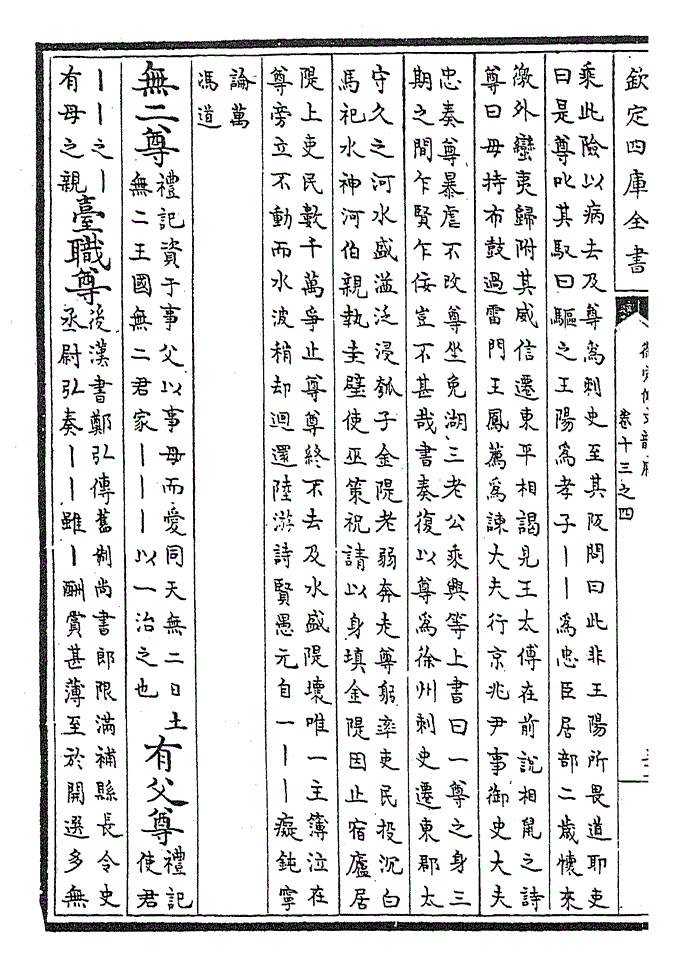 欽定四庫全書
御定佩文韻府
卷十三之四
乘此險以病去及尊為刺史至其阪問曰此非王陽所畏道耶吏
曰是尊叱其馭曰驅之王陽為孝子丨丨為忠臣居部二歲懷來
徼外蠻夷歸附其威信遷東平相謁見王太傅在前說相鼠之詩
尊曰毋持布鼓過雷門王鳳薦為諫大夫行京兆尹事御史大夫
忠奏尊暴虐不改尊坐免湖三老公乘輿等上書曰一尊之身三
期之間乍賢乍佞豈不甚哉書奏復以尊為徐州刺史遷東郡太
守久之河水盛溢泛浸瓠子金隄老弱奔走尊躬率吏民投沉白
馬祀水神河伯親執圭璧使巫策祝請以身填金隄因止宿廬居
隄上吏民數千萬爭止尊尊終不去及水盛隄壞唯一主簿泣在
尊旁立不動而水波稍却迴還陸游詩賢愚元自一丨丨癡鈍寧
論萬
馮道
無二尊
禮記資于事父以事母而愛同天無二日土
無二王國無二君家丨丨丨以一治之也
有父尊
禮記
使君
丨丨之丨
有母之親
臺職尊
後漢書鄭弘傳舊制尚書郎限滿補縣長令史
丞尉弘奏丨丨雖丨酬賞甚薄至於開選多無